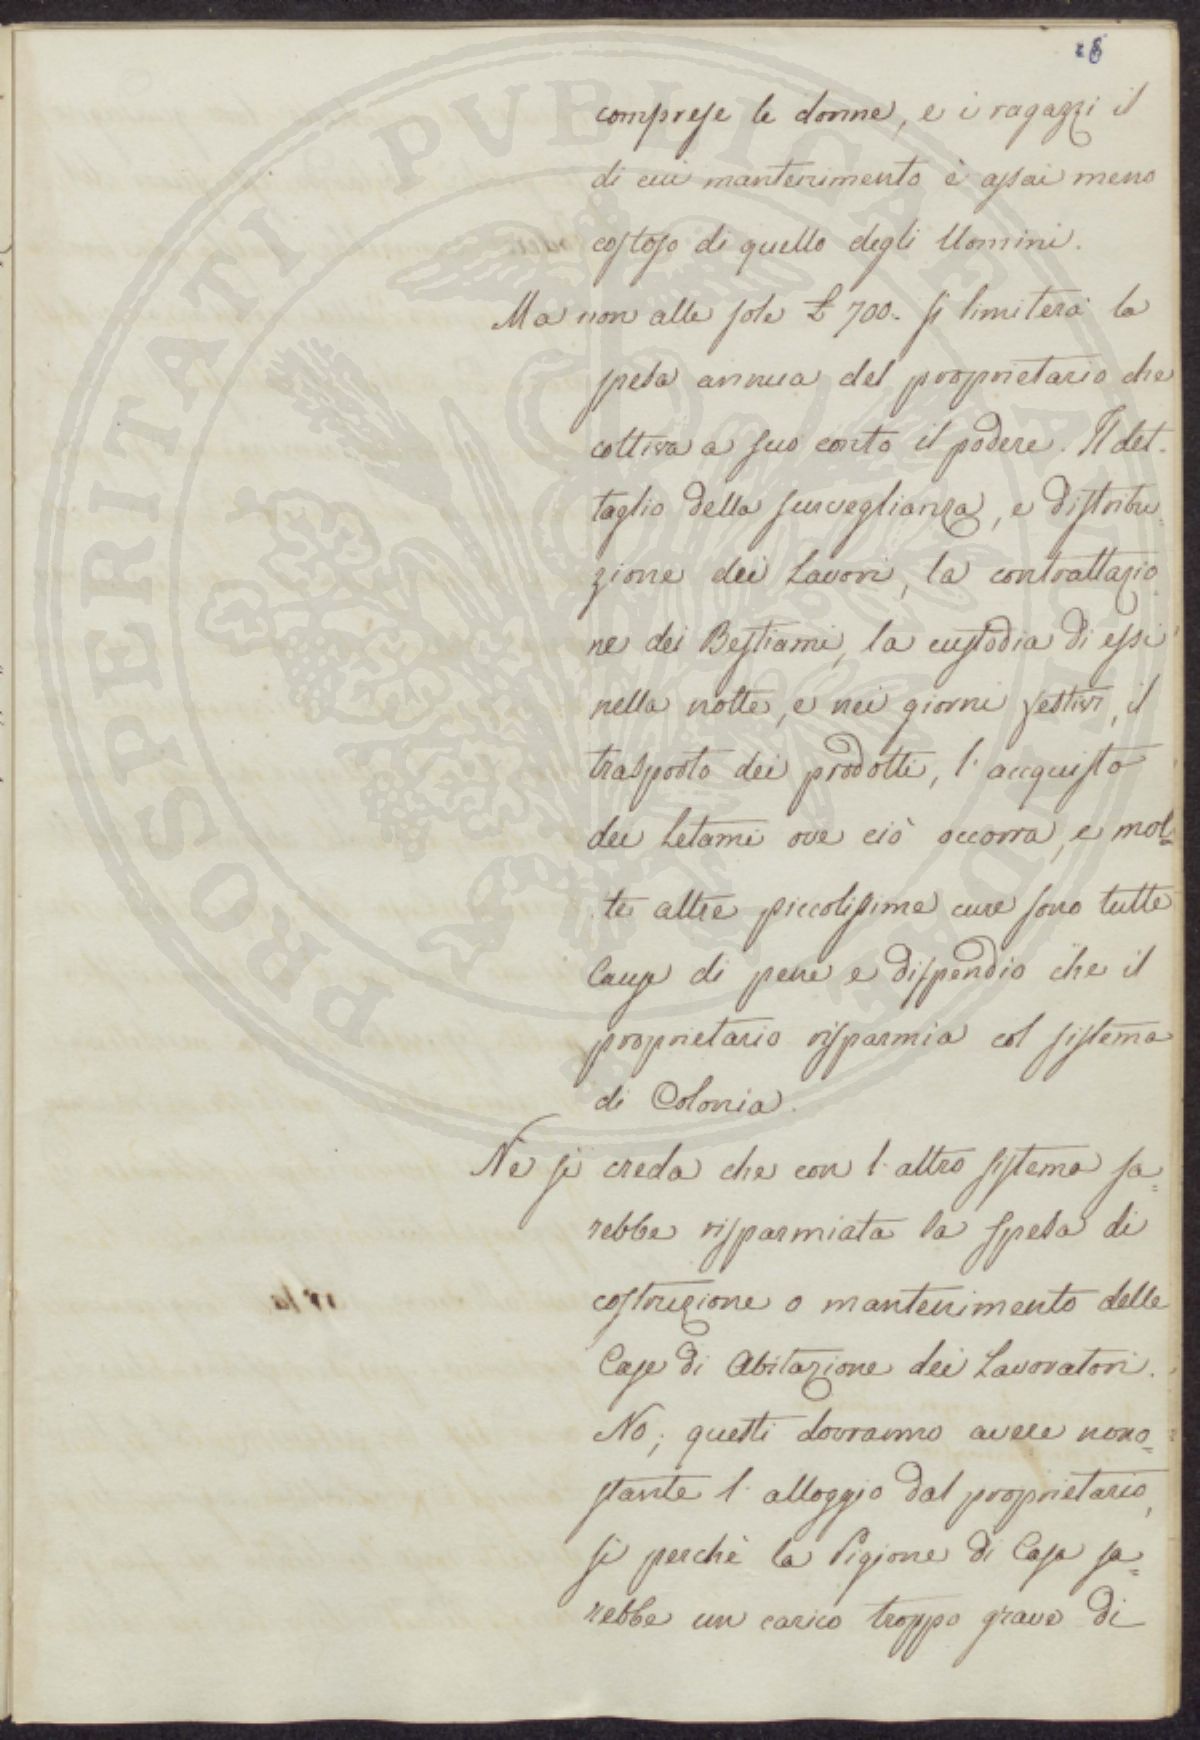 28
comprese le donne, e i ragazzi il
di cui mantenimento è assai meno
costoso di quello degli Uomini.
Ma non alle sole £ 700. si limiterà la
spesa annua del proprietario che
coltiva a suo conto il podere. Il det-
taglio della surveglianza, e distribu-
zione dei Lavori, la contrattazio
ne dei Bestiami, la custodia di essi
nella notte, e nei giorni festivi, il
trasporto dei prodotti, l'acquisto
dei Letami ove ciò occorra, e mol=
te altre piccolissime cure sono tutte
Causa di pene e dispendio che il
proprietario risparmia col sistema
di Colonia.
Nè si creda che con l'altro sistema sa=
rebbe risparmiata la spesa di
costruzione o mantenimento delle
Case di Abitazione dei Lavoratori.
No; questi dovranno avere nono=
stante l'alloggio dal proprietario,
sì perchè la Pigione di Casa sa=
rebbe un carico troppo grave di
PROSPERITATI PUBLICAE AUGENDAE